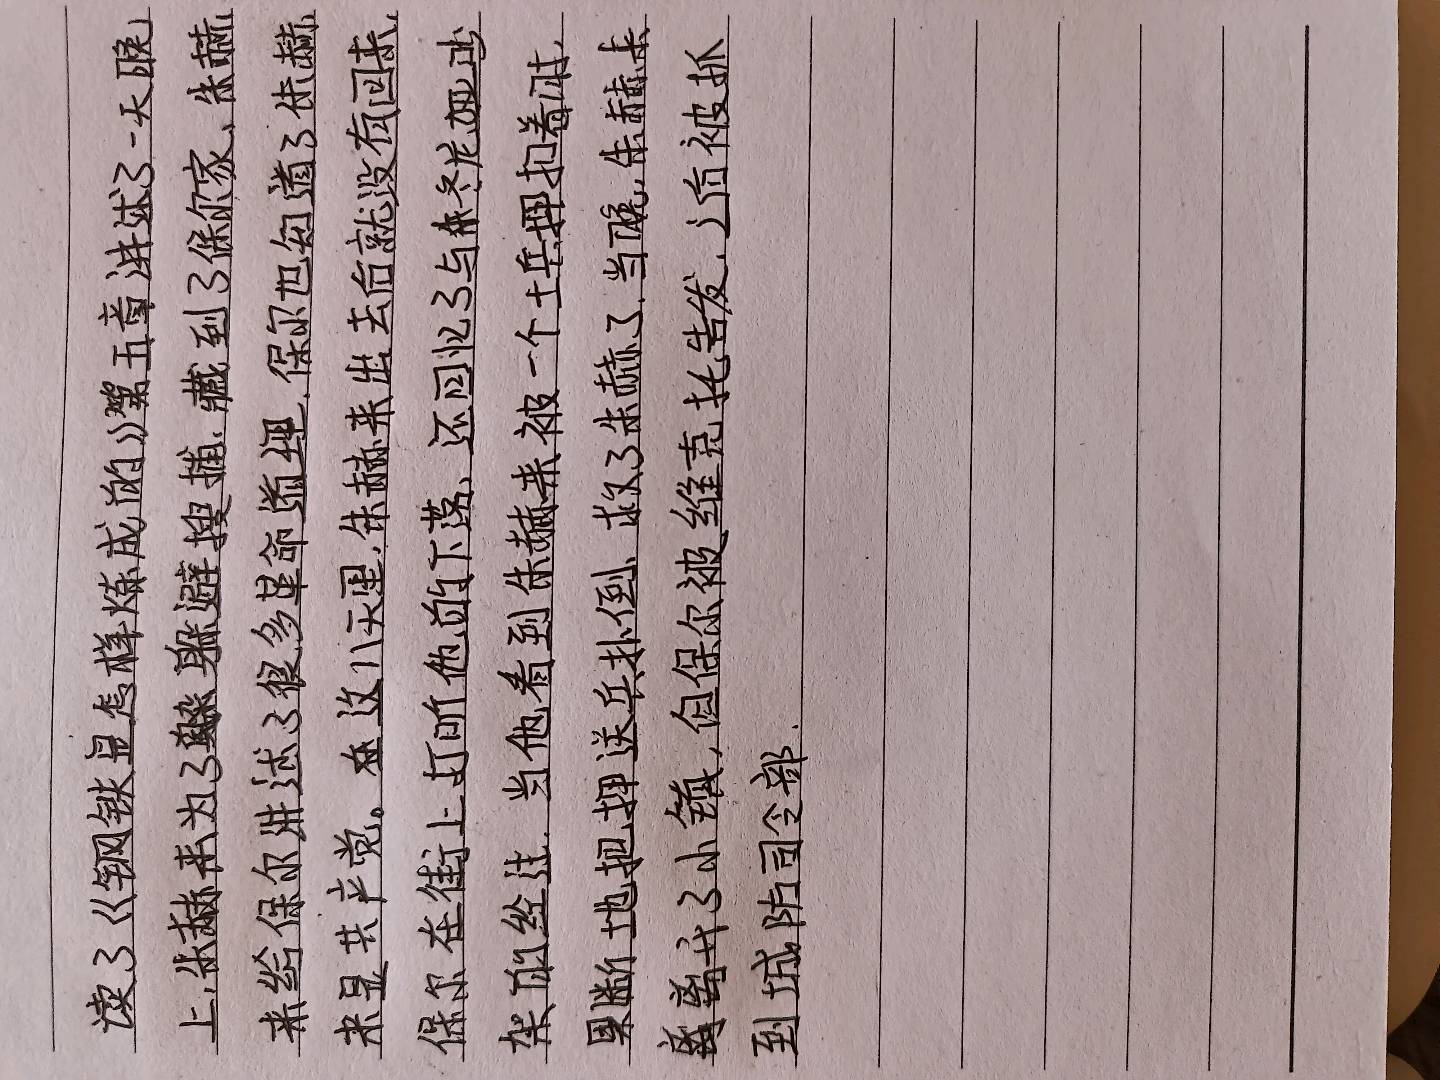 读了《钢铁是怎样炼成的》第五章讲述了一天晚
上,朱赫来为了躲避搜捕,藏到了保尔家、朱赫
来给保尔讲述了很多革命道理,保尔也知道了朱赫
来是共产党。在这八天里,朱赫来出去后就没有回来,
保尔在街上打听他的下落、还回忆了与冬尼亚吵
架的经过.当他看到朱赫来被一个士兵押着时,
果断地把押送兵扑倒、救了朱赫了.当晚,朱赫来
离开了小镇,但保尔被维克托告发,后被抓
到城防司令部.